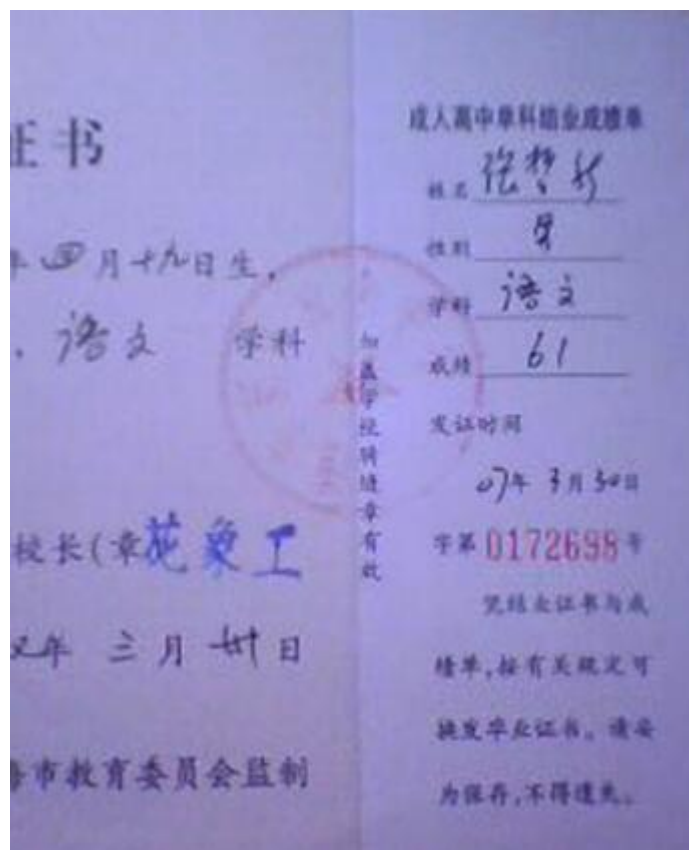 证书
年四月十九日生,
, 语文 学科
校长(章
年 三月 卅日
海市教育委员会监制
加盖学校骑缝章有效
成人高中单科结业成绩单
姓名 张
性别 男
学科 语文
成绩 61
发证时间
07年 3月 30日
字第 0172698 号
凭结业证书与成
绩单,按有关规定可
换发毕业证书。请妥
为保存,不得遗失。